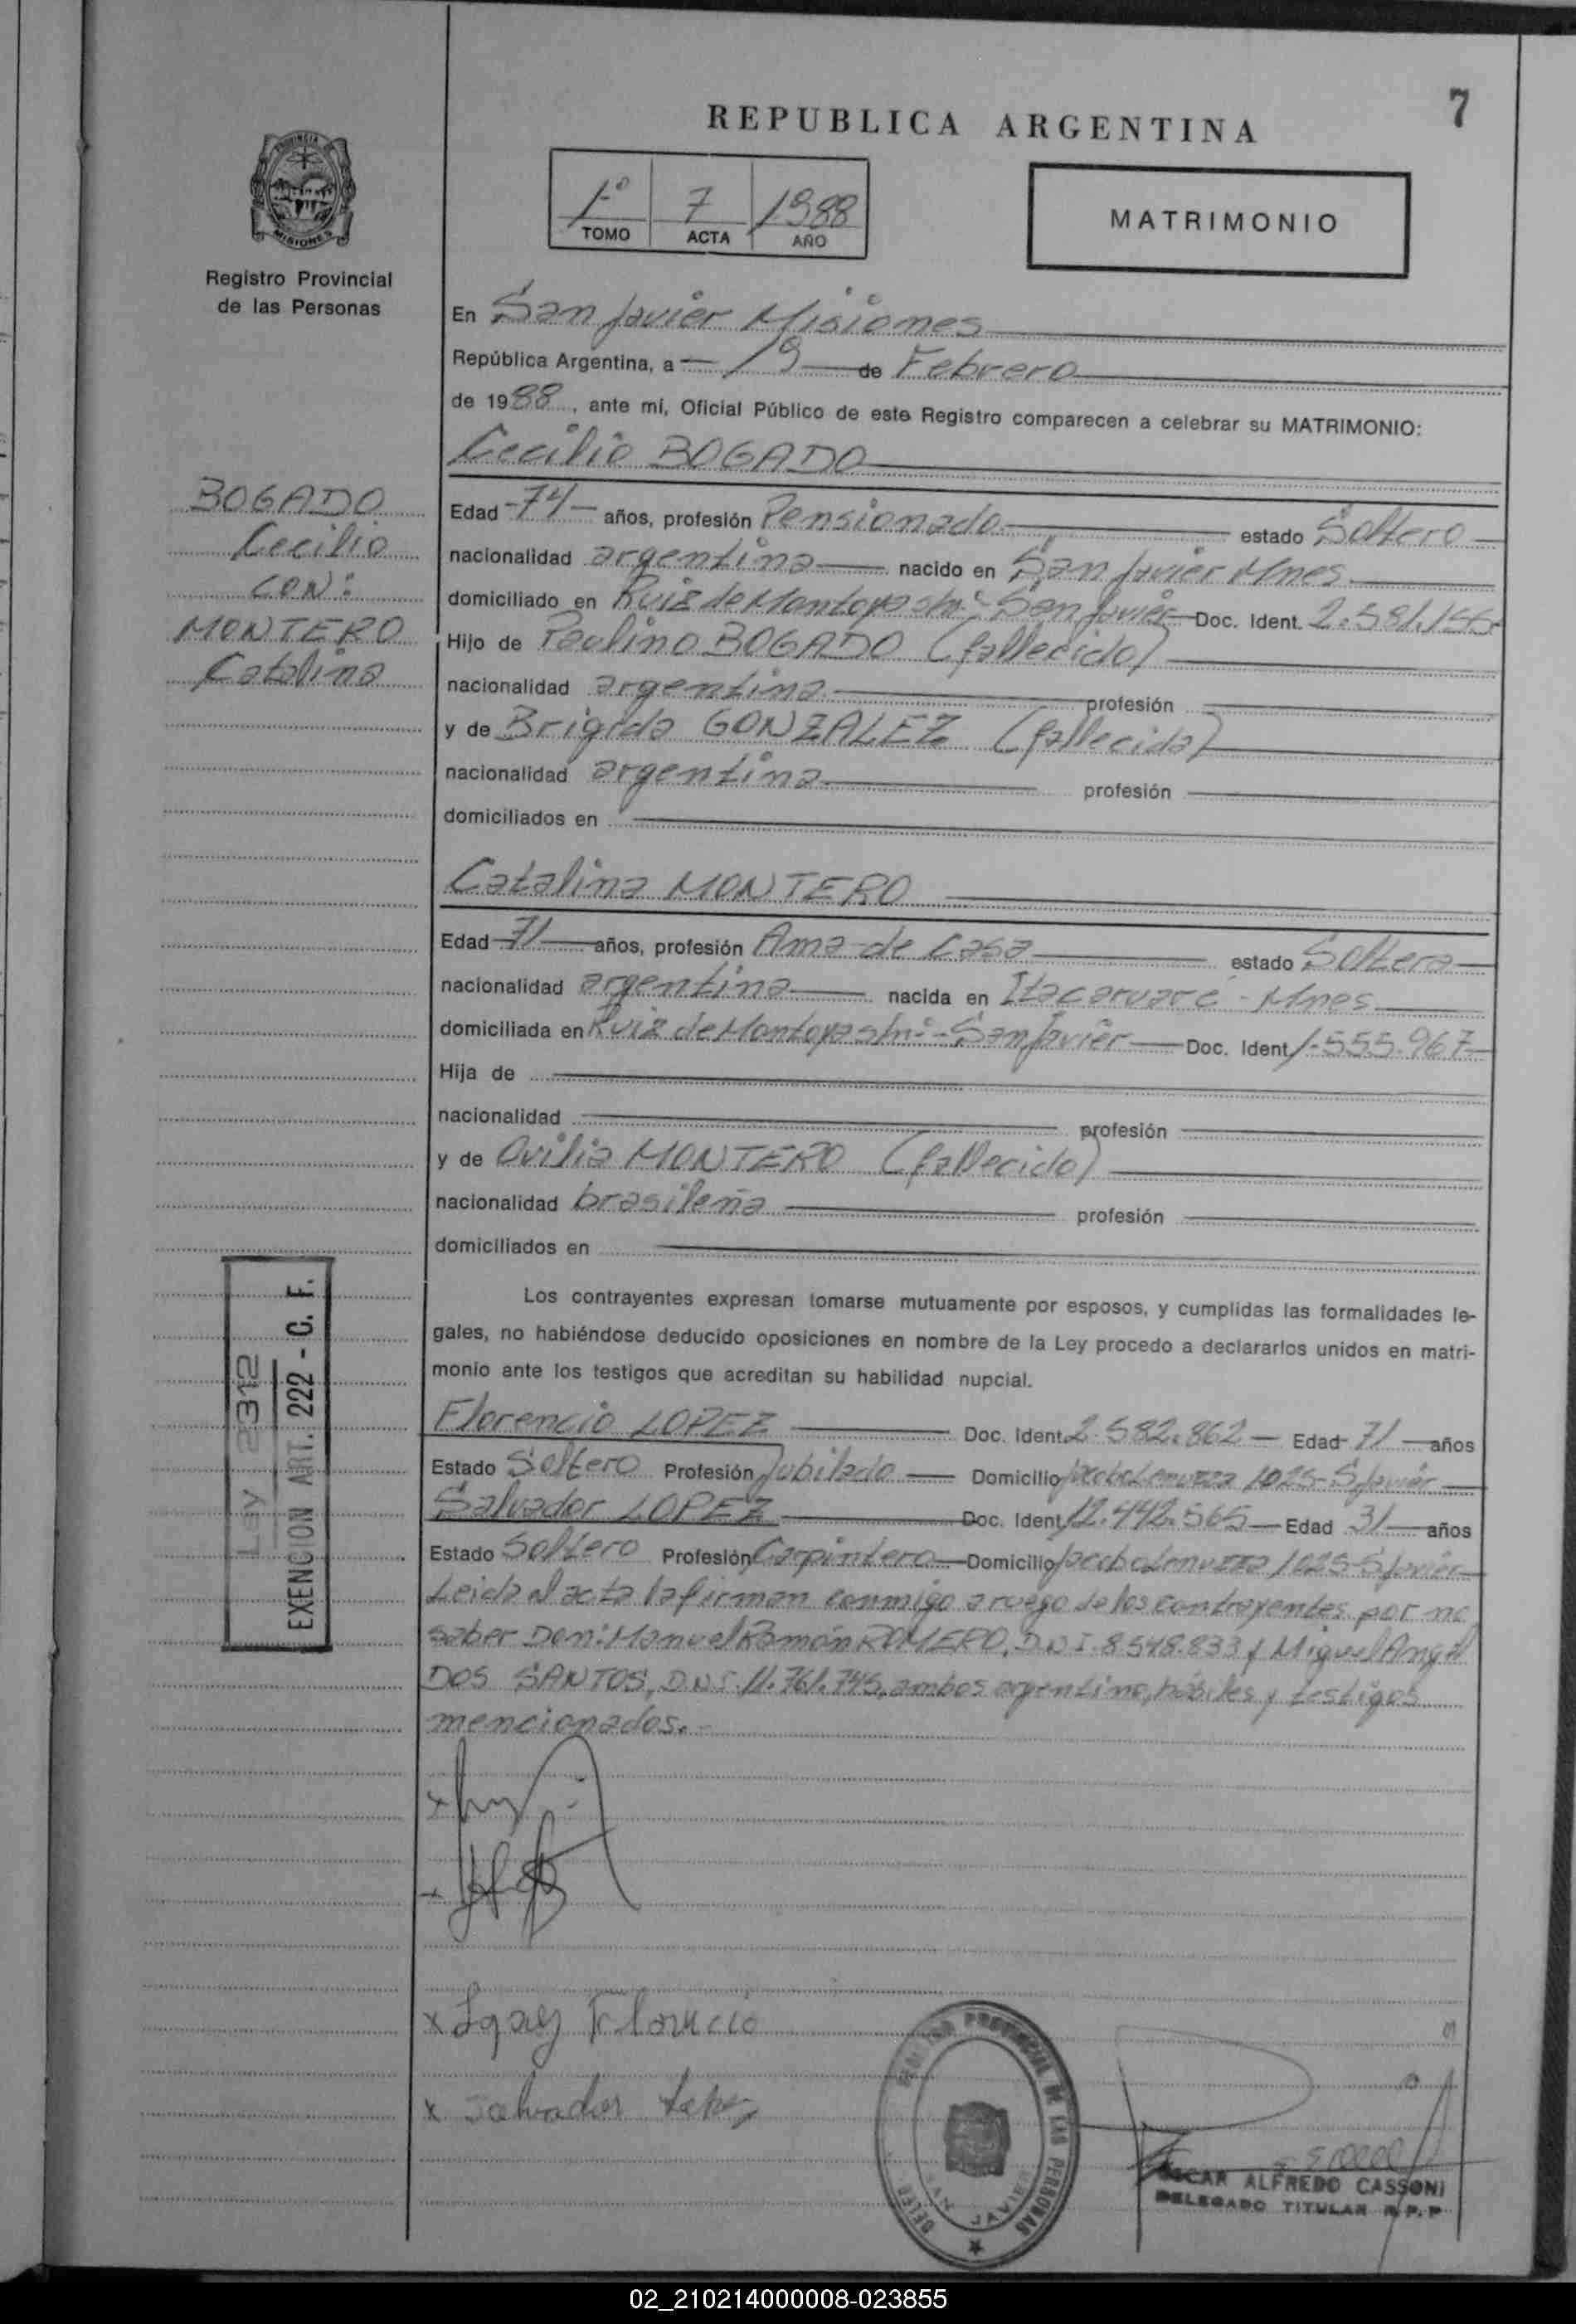 7
REPUBLICA ARGENTINA
PROVINCIA DE
MISIONES
Registro Provincial
de las Personas
1º 7 1988
TOMO ACTA AÑO
MATRIMONIO
En San Javier Misiones
República Argentina, a 19 de Febrero
de 1988, ante mí, Oficial Público de este Registro comparecen a celebrar su MATRIMONIO:
Cecilio BOGADO
BOGADO
Cecilio
CON:
MONTERO
Catalina
Edad 74 años, profesión Pensionado estado Soltero
nacionalidad argentina nacido en San Javier Mnes
domiciliado en Ruiz de Montoya s/nº San Javier Doc. Ident. 2.581.155
Hijo de Paulino BOGADO (fallecido)
nacionalidad argentina profesión
y de Brigida GONZALEZ (fallecida)
nacionalidad argentina profesión
domiciliados en
Catalina MONTERO
Edad 71 años, profesión Ama de Casa estado Soltera
nacionalidad argentina nacida en Itacaruaré - Mnes
domiciliada en Ruiz de Montoya s/nº - San Javier Doc. Ident 1.555.967
Hija de
nacionalidad profesión
y de Ovilia MONTERO (fallecida)
nacionalidad brasileña profesión
domiciliados en
Los contrayentes expresan tomarse mutuamente por esposos, y cumplidas las formalidades le-
gales, no habiéndose deducido oposiciones en nombre de la Ley procedo a declararlos unidos en matri-
monio ante los testigos que acreditan su habilidad nupcial.
Ley 2312
EXENCION ART. 222 - C. F.
Florencio LOPEZ Doc. Ident. 2.582.862 Edad 71 años
Estado Soltero Profesión Jubilado Domicilio 1025 - S. Javier
Salvador LOPEZ Doc. Ident. 12.442.565 Edad 31 años
Estado Soltero Profesión Carpintero Domicilio 1025 - S. Javier
Leida el acta la firman conmigo a ruego de los contrayentes por no
saber Don: Manuel Ramón ROMERO, D.N.I. 8.548.833 y Miguel Angel
DOS SANTOS, D.N.I. 11.761.745, ambos argentino, hábiles y testigos
mencionados.
x
x
x Lopez Florencio
x Salvador Lopez
REGISTRO PROVINCIAL DE LAS PERSONAS
SAN JAVIER
OSCAR ALFREDO CASSONI
DELEGADO TITULAR R.P.P
02_210214000008-023855